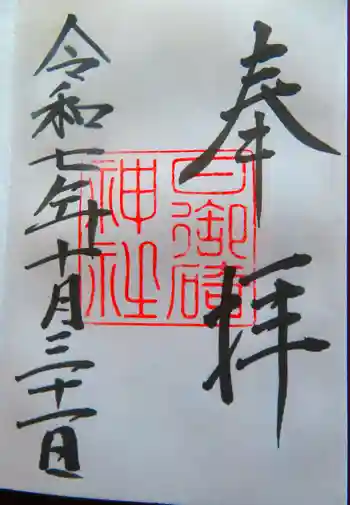 奉拝
日御碕
神社
令和七年十月三十一日